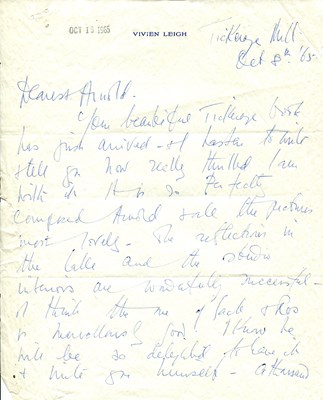 OCT 13 1965
VIVIEN LEIGH
Tickerage Mill
Oct 8th. '65.
Dearest Arnold.
Your beautiful Tickerage book
has just arrived - I hasten to write
& tell you how really thrilled I am
with it. It is so perfectly
composed Arnold & all the pictures
most lovely - The reflections in
the lake and the studio
interiors are wonderfully successful -
I think the one of Jack & Ros
is marvellously good. I know he
will be so delighted to have it
& write you himself - A thousand